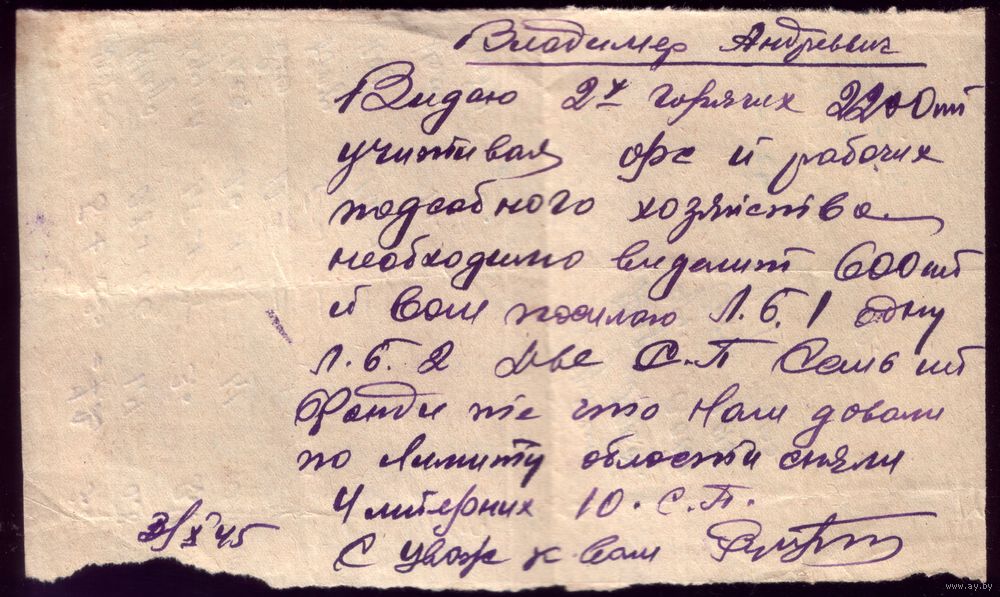 Владимер Андреевич
Видаю 2х горячих 2200 шт
учитивая орс и рабочих
подсобного хозяйства
необходимо виделит 600 шт
и вам посилаю Л.Б.1 одну
Л.Б.2 две С.П семь шт
Фонди те что нам довали
по лимиту области сняли
4 литерних 10. С.П.
С уваж к вам
X 45
www.ay.by